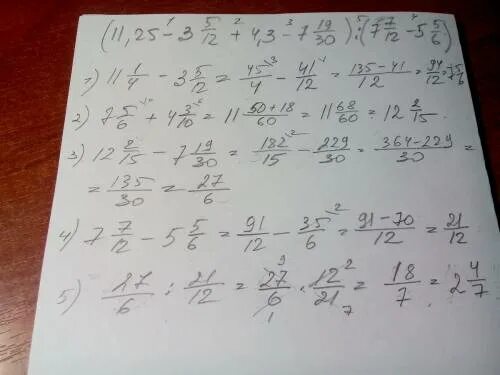 (11,25 - 3 5/12 + 4,3 - 7 19/30) : (7 7/12 - 5 5/6)
1) 11 1/4 - 3 5/12 = 45/4 - 41/12 = 135-41/12 = 94/12 = 7 5/6
2) 7 5/6 + 4 3/10 = 11 50+18/60 = 11 68/60 = 12 2/15
3) 12 2/15 - 7 19/30 = 182/15 - 229/30 = 364-229/30 =
= 135/30 = 27/6
4) 7 7/12 - 5 5/6 = 91/12 - 35/6 = 91-70/12 = 21/12
5) 27/6 : 21/12 = 27/6 · 12/21 = 18/7 = 2 4/7